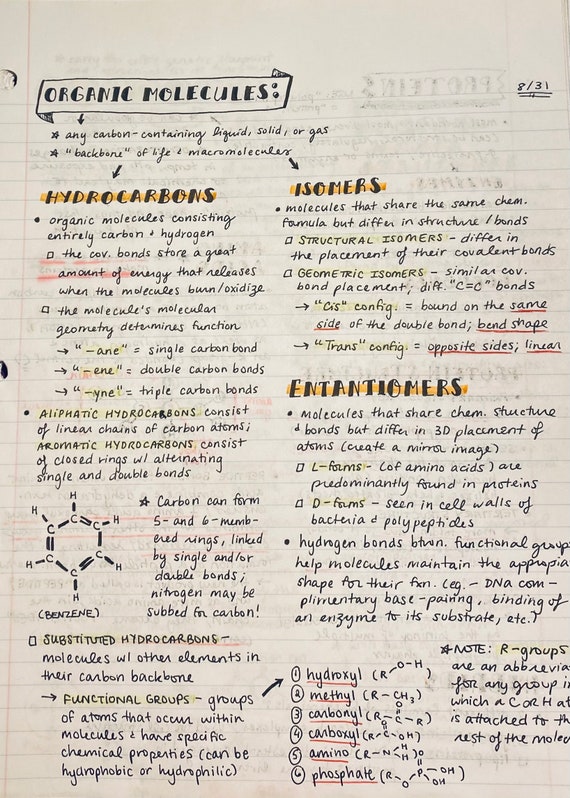 ORGANIC MOLECULES:
8/31
☆ any carbon-containing liquid, solid, or gas
☆ "backbone" of life & macromolecules
HYDROCARBONS
• organic molecules consisting
entirely carbon & hydrogen
□ the cov. bonds store a great
amount of energy that releases
when the molecules burn/oxidize
□ the molecule's molecular
geometry determines function
→ "-ane" = single carbon bond
→ "-ene" = double carbon bonds
→ "-yne" = triple carbon bonds
• ALIPHATIC HYDROCARBONS consist
of linear chains of carbon atoms;
AROMATIC HYDROCARBONS consist
of closed rings w/ alternating
single and double bonds
H
H C H
C C
C C
H C H
H
(BENZENE)
☆ Carbon can form
5- and 6-memb-
ered rings, linked
by single and/or
double bonds;
nitrogen may be
subbed for carbon!
□ SUBSTITUTED HYDROCARBONS -
molecules w/ other elements in
their carbon backbone
→ FUNCTIONAL GROUPS - groups
of atoms that occur within
molecules & have specific
chemical properties (can be
hydrophobic or hydrophilic)
ISOMERS
• molecules that share the same chem.
formula but differ in structure / bonds
□ STRUCTURAL ISOMERS - differ in
the placement of their covalent bonds
□ GEOMETRIC ISOMERS - similar cov.
bond placement; diff. "C=C" bonds
→ "Cis" config. = bound on the same
side of the double bond; bend shape
→ "Trans" config. = opposite sides; linear
ENTANTIOMERS
• molecules that share chem. structure
& bonds but differ in 3D placement of
atoms (create a mirror image)
□ L-forms - (of amino acids) are
predominantly found in proteins
□ D-forms - seen in cell walls of
bacteria & polypeptides
• hydrogen bonds btwn. functional groups
help molecules maintain the appropia
shape for their fxn. (eg. - DNA com-
plimentary base-pairing, binding of
an enzyme to its substrate, etc.)
① hydroxyl (R O-H)
② methyl (R-CH₃)
③ carbonyl (R-C-R) O
④ carboxyl (R-C-OH) O
⑤ amino (R-N-H) H
⑥ phosphate (R-O-P-OH) O OH
☆NOTE: R-groups
are an abbrevia
for any group in
which a C or H at
is attached to th
rest of the molec